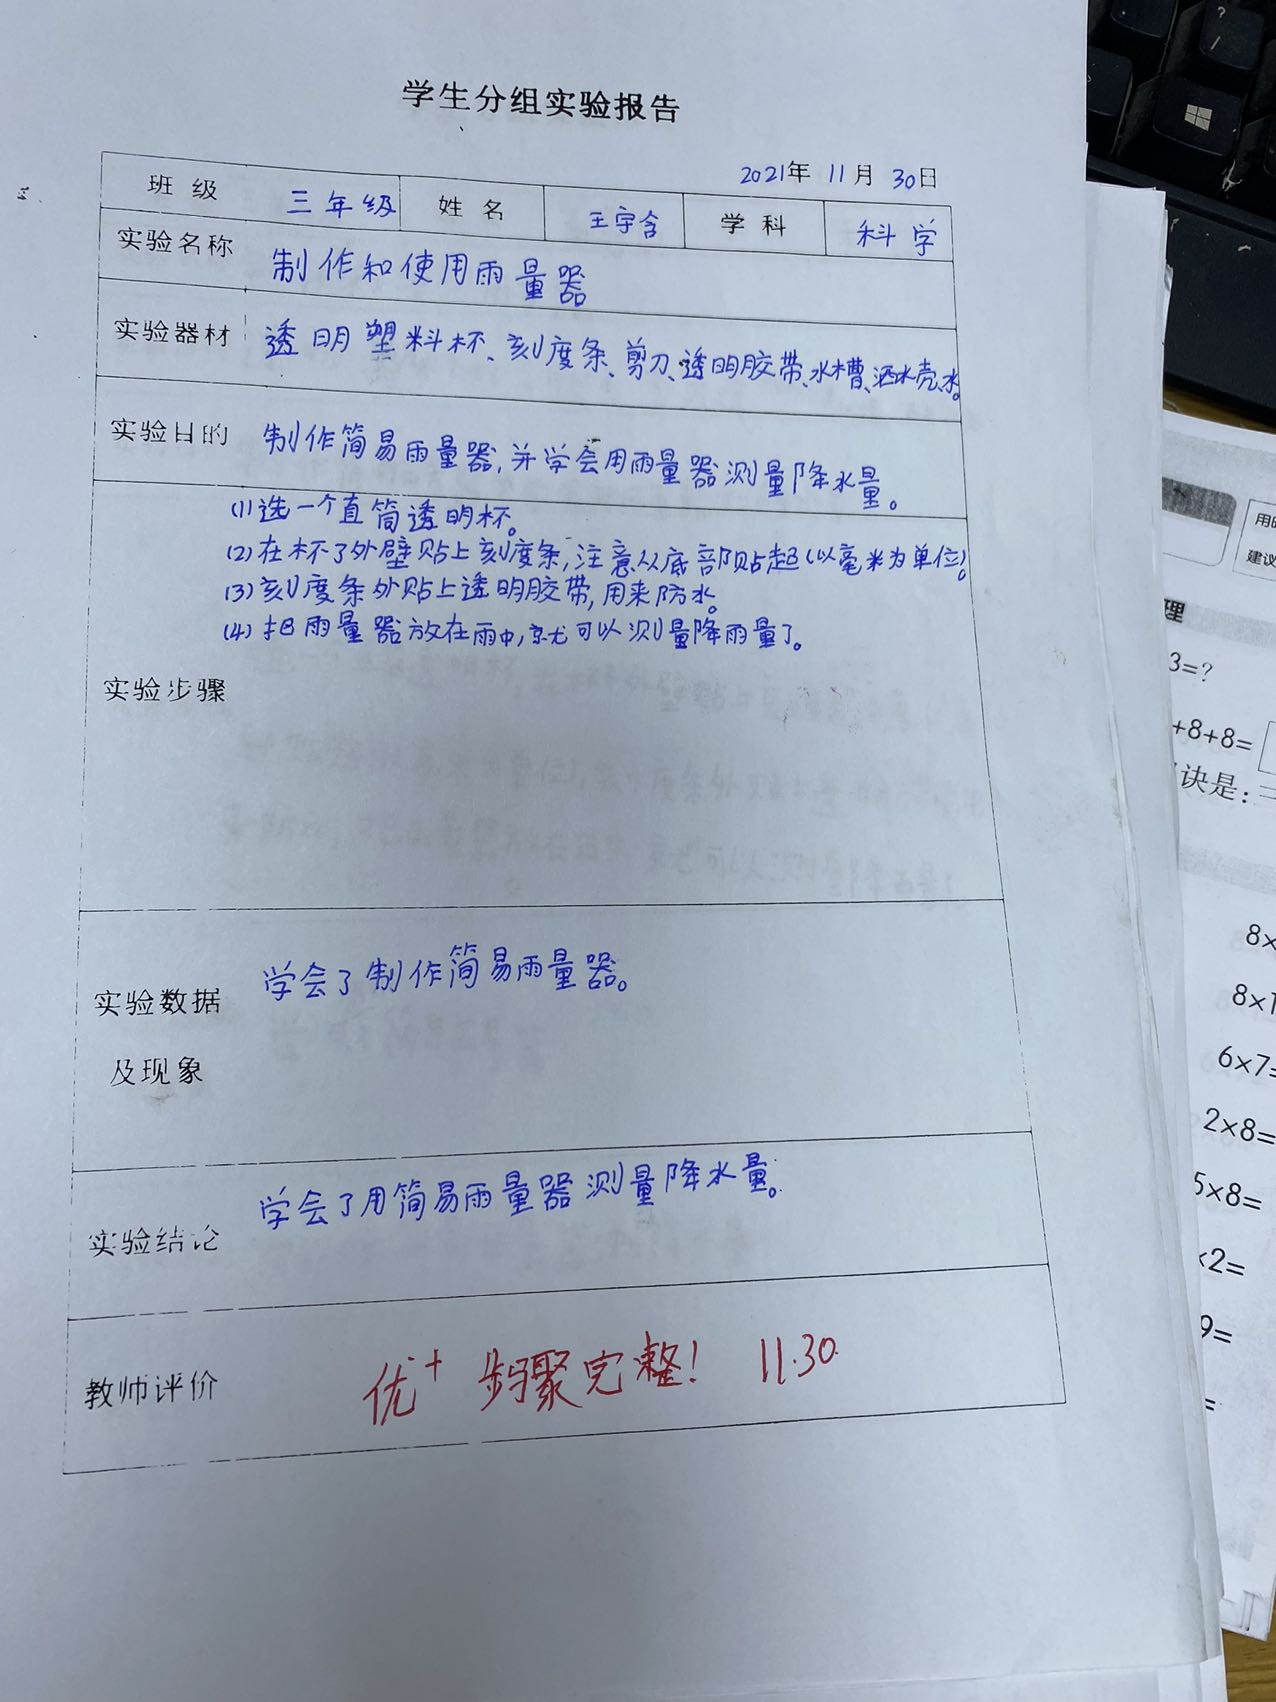 学生分组实验报告
2021年 11月 30日
班级 三年级 姓名 王宇含 学科 科学
实验名称 制作和使用雨量器
实验器材 透明塑料杯、刻度条、剪刀、透明胶带、水槽、洒水壳、水。
实验目的 制作简易雨量器,并学会用雨量器测量降水量。
实验步骤
(1)选一个直筒透明杯。
(2)在杯子外壁贴上刻度条,注意从底部贴起(以毫米为单位)。
(3)刻度条外贴上透明胶带,用来防水。
(4)把雨量器放在雨中,就可以测量降雨量了。
实验数据
及现象
学会了制作简易雨量器。
实验结论 学会了用简易雨量器测量降水量。
教师评价 优+ 步骤完整! 11.30
?
/
用
建议
理
3=?
+8+8=
诀是:
8×
8×
6×7=
2×8=
5×8=
×2=
9=
=